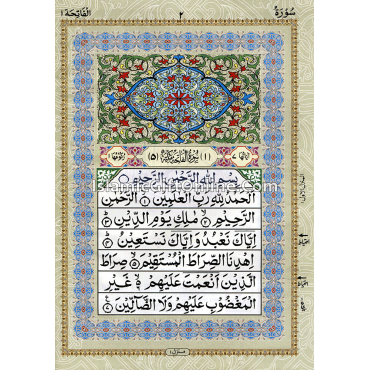 الْفَاتِحَة ١
٢
سُوْرَةُ
اٰيَاتُهَا ٧ (١) سُوْرَةُ الْفَاتِحَةِ مَكِّيَّةٌ (٥) رُكُوْعُهَا ١
بِسْمِ اللّٰهِ الرَّحْمٰنِ الرَّحِيْمِ
اَلْحَمْدُ لِلّٰهِ رَبِّ الْعٰلَمِيْنَ ١ الرَّحْمٰنِ
الرَّحِيْمِ ٢ مٰلِكِ يَوْمِ الدِّيْنِ ٣
اِيَّاكَ نَعْبُدُ وَاِيَّاكَ نَسْتَعِيْنُ ٤
اِهْدِنَا الصِّرَاطَ الْمُسْتَقِيْمَ ٥ صِرَاطَ
الَّذِيْنَ اَنْعَمْتَ عَلَيْهِمْ ٦ غَيْرِ
الْمَغْضُوْبِ عَلَيْهِمْ وَلَا الضَّآلِّيْنَ ٧
منزل ١